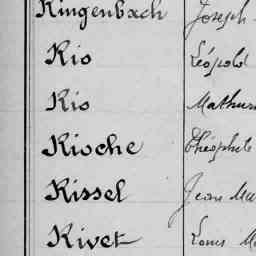 Ringenbach Joseph
Rio Léopold
Rio Mathur
Rioche Théophile
Rissel Jean Ma
Rivet Louis M